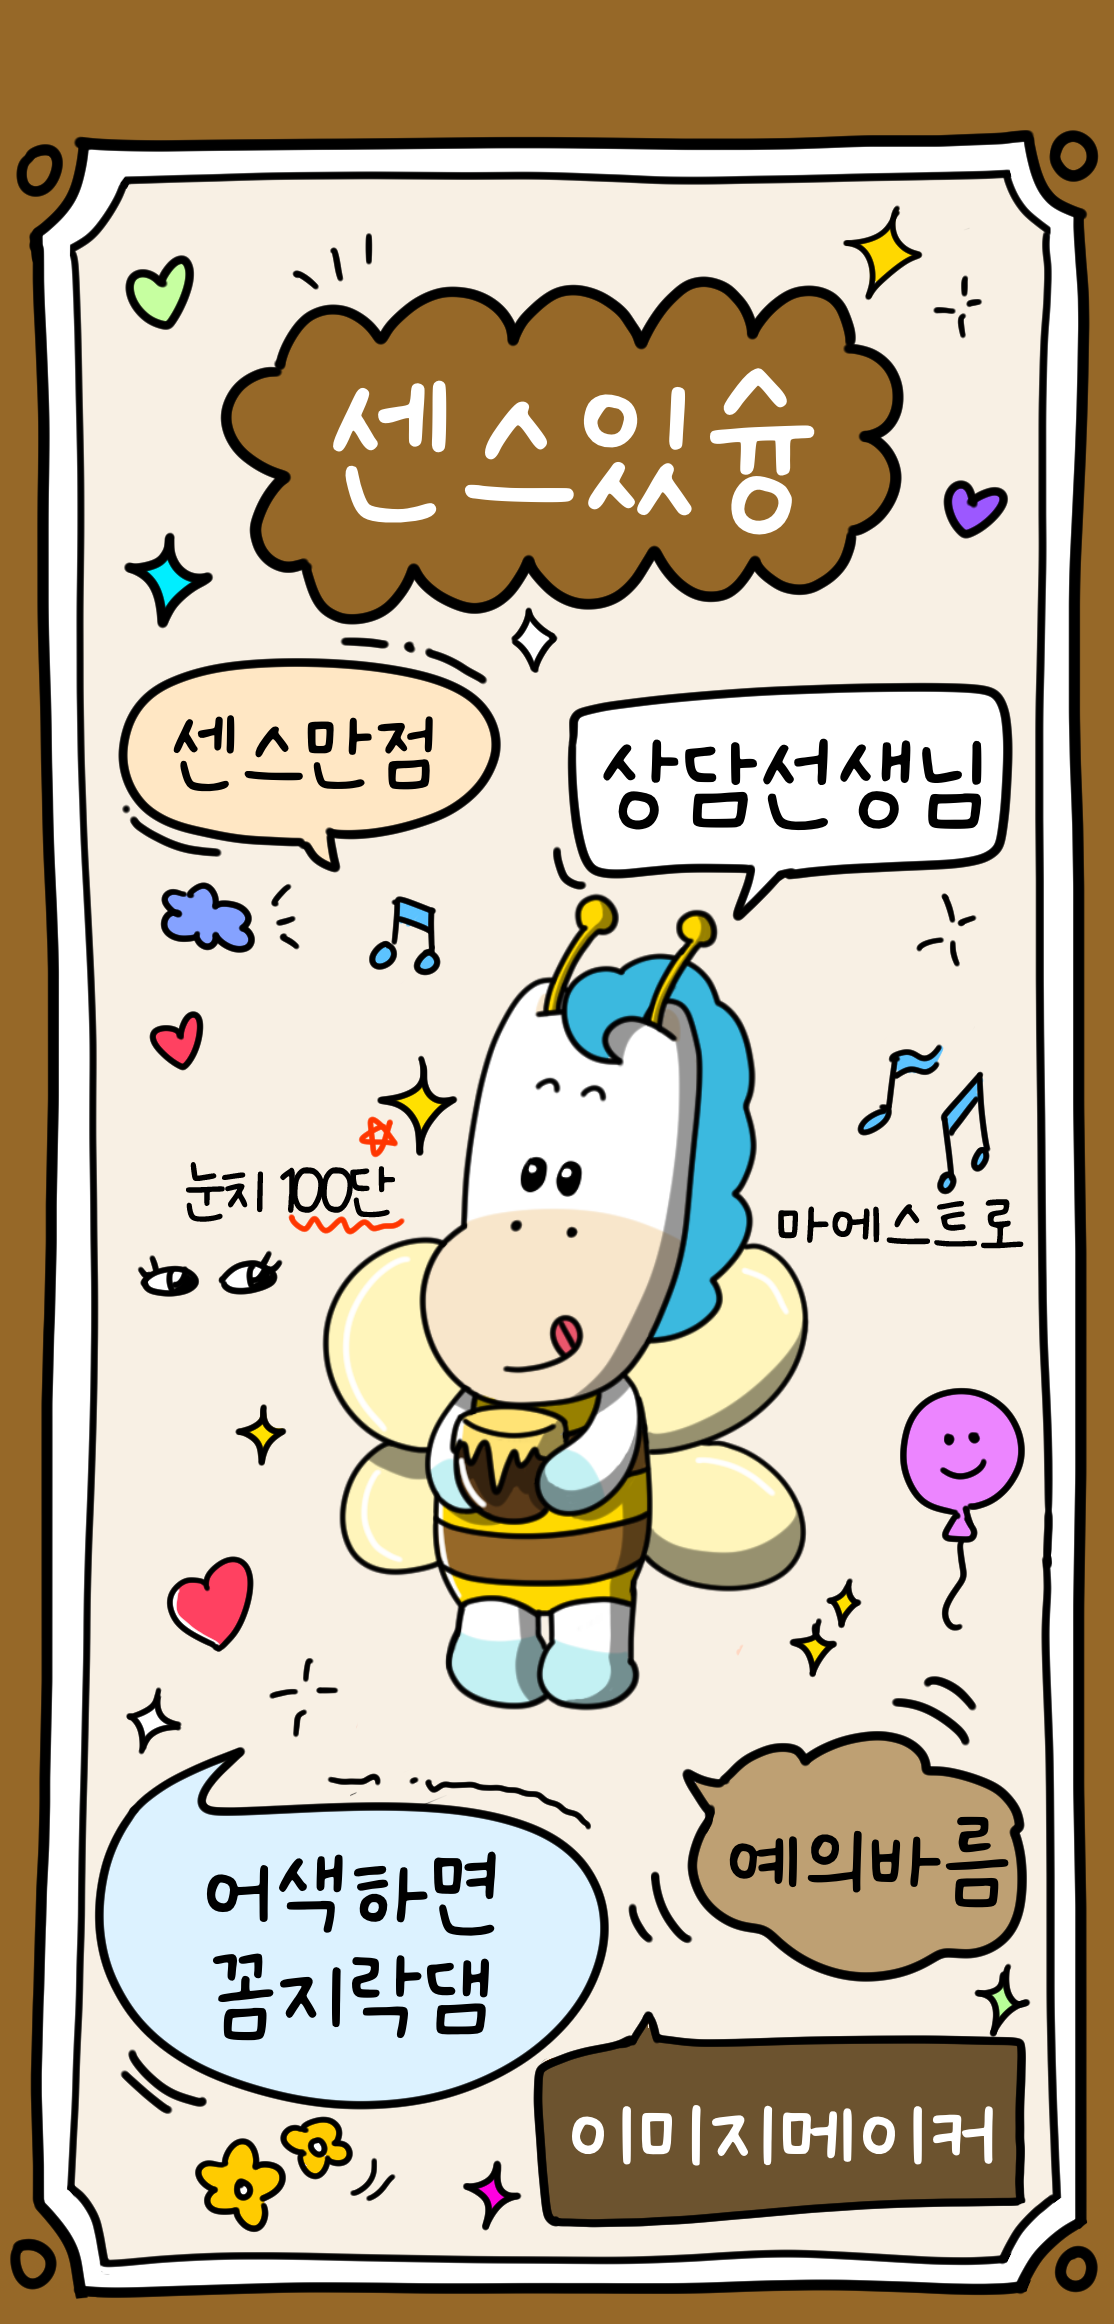 센스있슝
센스만점
상담선생님
눈치 100단
마에스트로
어색하면
꼼지락댐
예의바름
이미지메이커